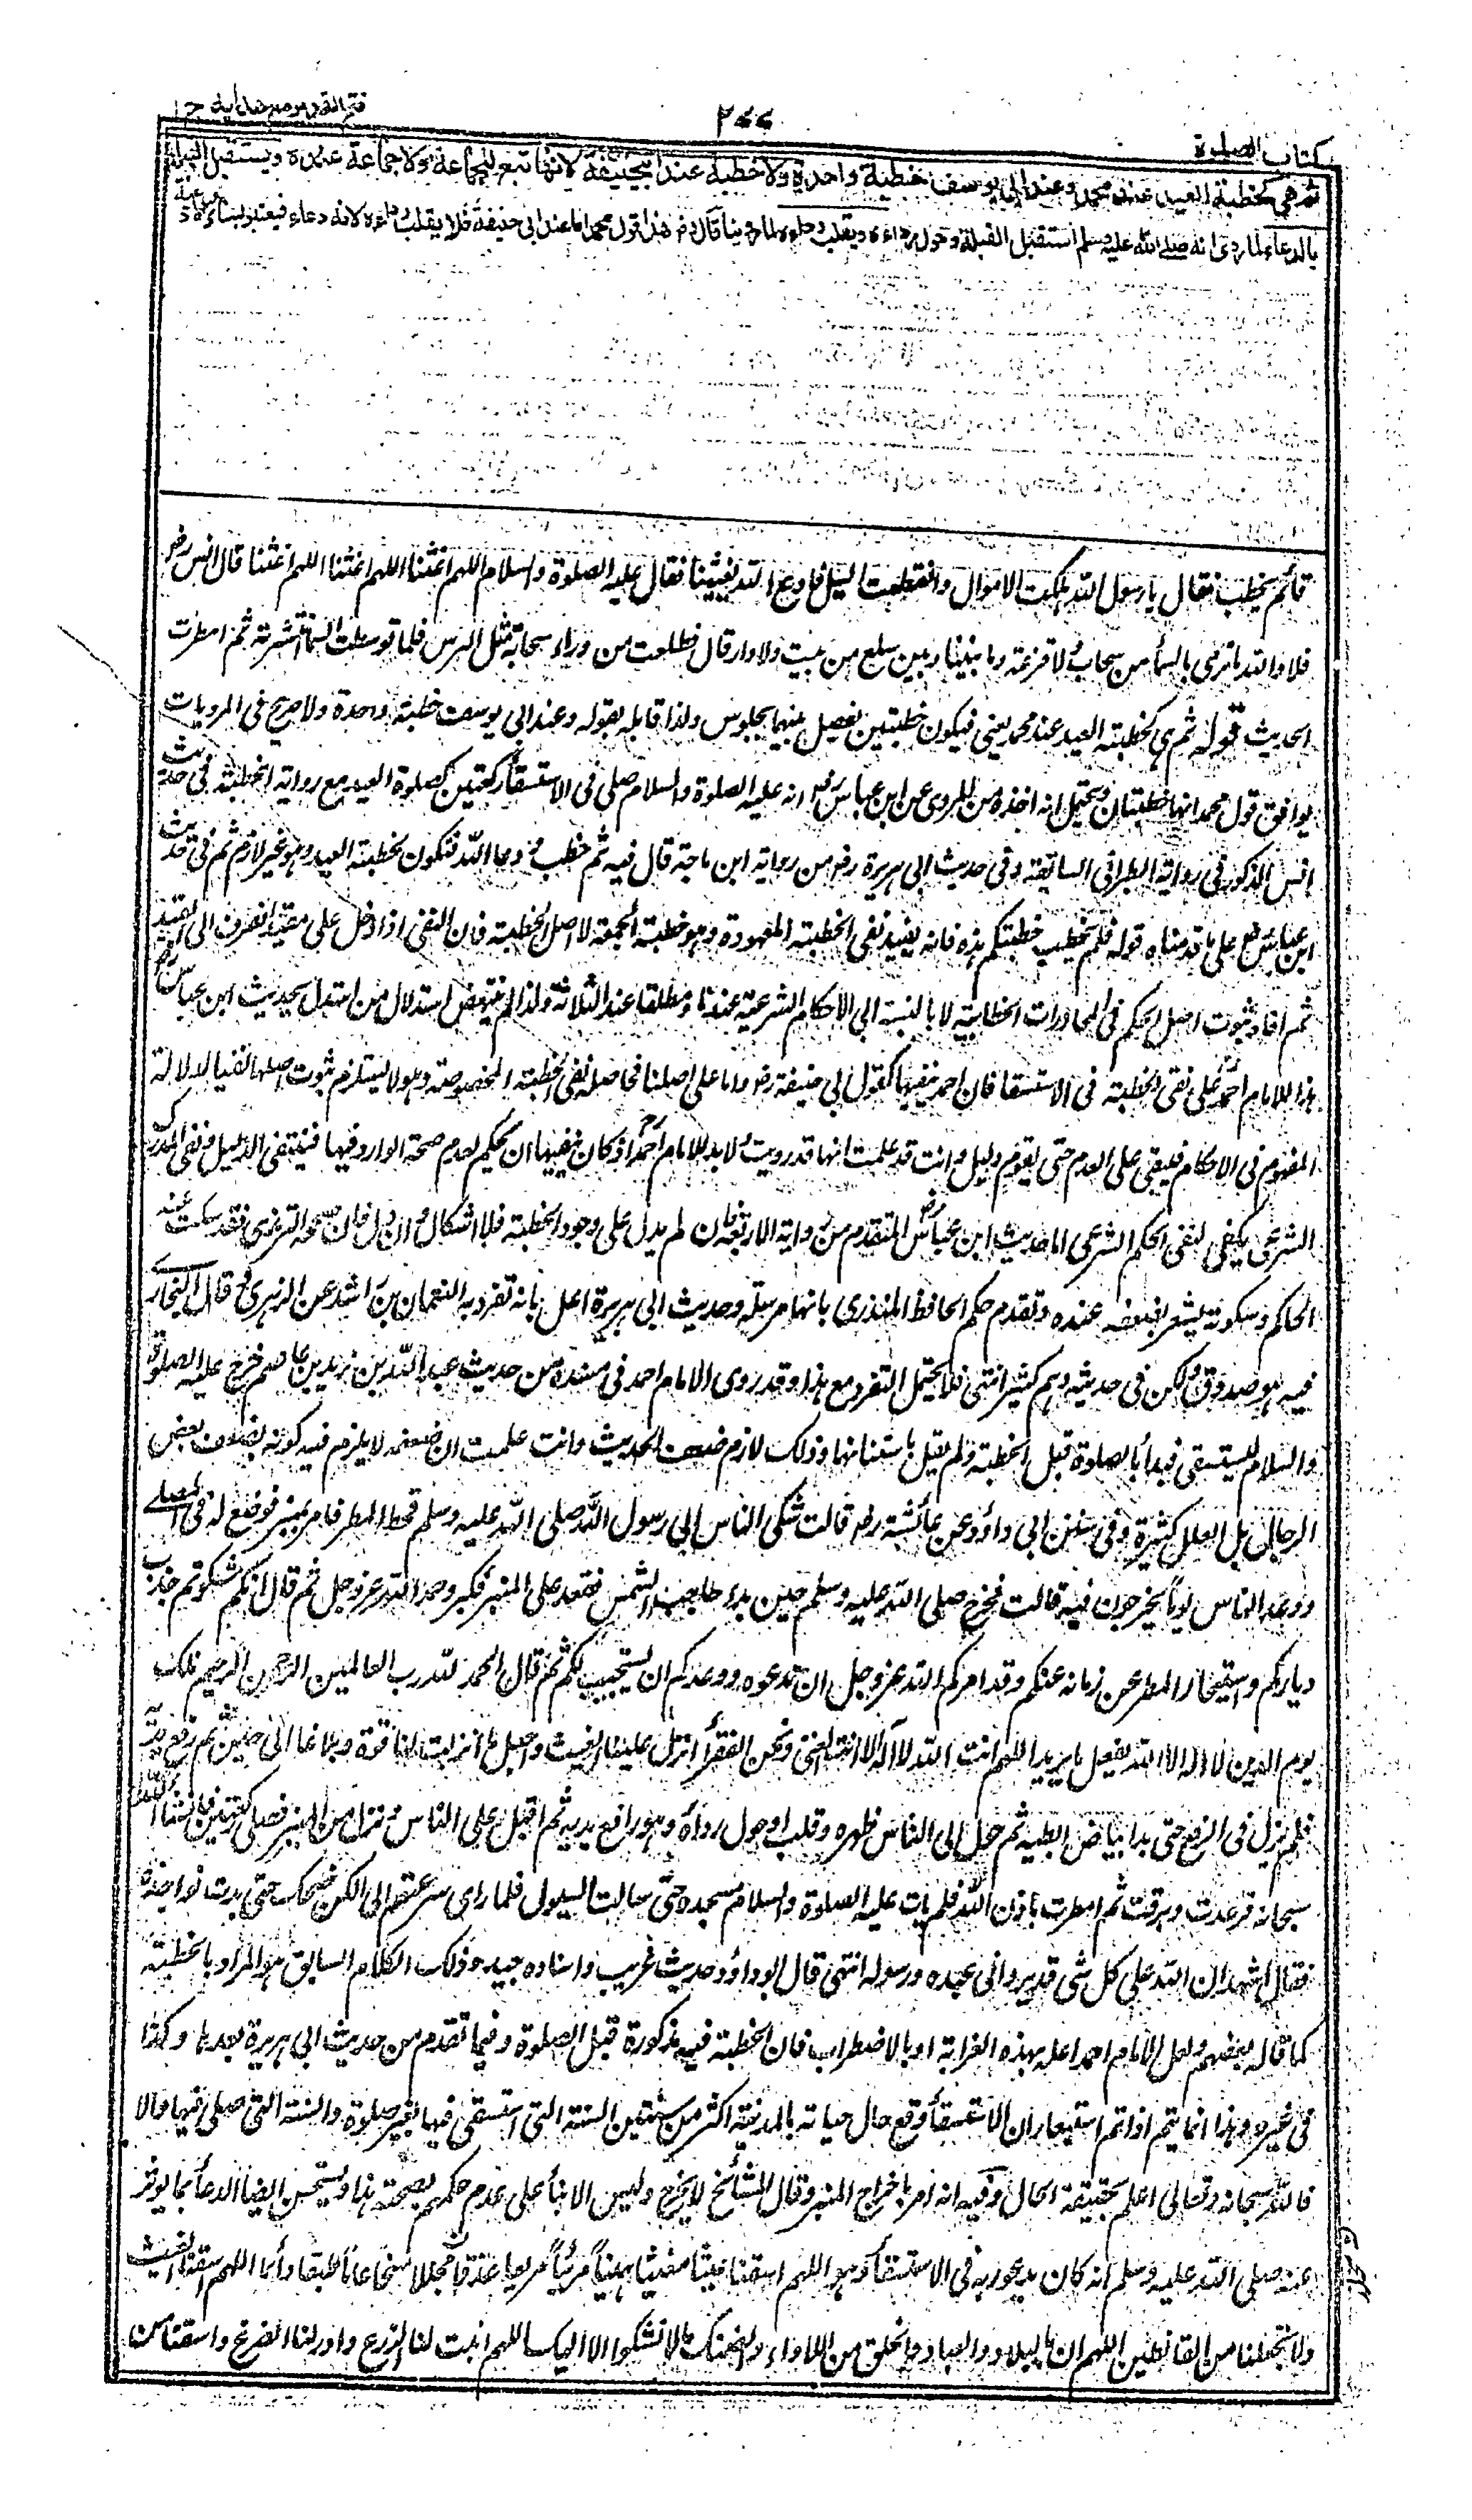 كتاب الصلوة
٢٧٧
فتح القدير مع هدايه ج ١
ثم هي كخطبة العيد عند محمد وعند ابي يوسف خطبة واحدة ولا خطبة عند ابيحنيفة لانها تبع للجماعة ولا جماعة عنده ويستقبل القبلة
بالدعاء لما روى انه صلى الله عليه وسلم استقبل القبلة وحول رداءه ويقلب رداءه لما روينا قال رض هذا قول محمد اما عند ابى حنيفة فلا يقلب رداءه لانه دعاء فيعتبر بسائر الادعية
قائم يخطب فقال يا رسول الله هلكت الاموال وانقطعت السبل فادع الله يغيثنا فقال عليه الصلوة والسلام اللهم اغثنا اللهم اغثنا اللهم اغثنا قال انس رض
فلا والله ما نرى بالسماء من سحاب ولا قزعة وما بيننا وبين سلع من بيت ولا دار قال فطلعت من وراءه سحابة مثل الترس فلما توسطت السماء انتشرت ثم امطرت
الحديث قوله ثم هى كخطبة العيد عند محمد يعنى فيكون خطبتين يفصل بينهما بجلوس ولذا قابله بقوله وعند ابى يوسف خطبة واحدة ولا صريح فى المرويات
يوافق قول محمد انها خطبتان ويحتمل انه اخذه من المروى عن ابن عباس رض انه عليه الصلوة والسلام صلى فى الاستسقاء ركعتين كصلوة العيد مع رواية الخطبة فى حديث
انس المذكور فى رواية الطبرانى السابقة وفى حديث ابى هريرة رض من رواية ابن ماجة قال فيه ثم خطب ودعا الله فتكون كخطبة العيد وهو غير لازم ثم فى حديث
ابن عباس رض على ما قدمناه قوله فلم يخطب خطبتكم هذه فانه يفيد نفى الخطبة المعهودة وهو خطبة الجمعة لا اصل الخطبة فان النفى اذا دخل على مقيد انصرف الى القيد
ثم افاد ثبوت اصل الحكم فى المحاورات الخطابية لا بالنسبة الى الاحكام الشرعية عندنا ومطلقا عند الثلاثة ولذا لم ينتهض استدلال من استدل بحديث ابن عباس رض
هذا للامام احمد على نفى الخطبة فى الاستسقا فان احمد ينفيها كقول ابى حنيفة رض واما على اصلنا فحاصله نفى الخطبة المخصوصة وهو لا يستلزم ثبوت اصلها لنفينا لدلالة
المفهوم فى الاحكام فيبقى على العدم حتى يقوم دليل وانت قد علمت انها قد رويت ولا بد للامام احمد رح اذ كان ينفيها ان يحكم بعدم صحة الوارد فيها فينتفى الدليل ونفى المدرك
الشرعى يكفى لنفى الحكم الشرعى اما حديث ابن عباس رض المتقدم من رواية الاربعة فان لم يدل على وجود الخطبة فلا اشكال وان دل فان صححه الترمذى فقد سكت عنه
الحاكم وسكوته يشعر بضعفه عنده وتقدم حكم الحافظ المنذرى بانها مرسلة وحديث ابى هريرة اعل بانه تفرد به النعمان بن راشد عن الزهرى وقال البخارى
فيه هو صدوق ولكن فى حديثه وهم كثير انتهى فلا يحتمل التفرد مع هذا وقد روى الامام احمد فى مسنده من حديث عبد الله بن زيد بن عاصم خرج عليه الصلوة
والسلام يستسقى فبدأ بالصلوة قبل الخطبة ولم يقل باستنانها وذلك لازم ضعف الحديث وانت علمت ان ضعفه لا يلزم فيه كونه بضعف بعض
الرجال بل العلل كثيرة وفى سنن ابى داؤد عن عائشة رض قالت شكى الناس الى رسول الله صلى الله عليه وسلم قحط المطر فامر بمنبر فوضع له فى المصلى
ووعد الناس يوما يخرجون فيه قالت فخرج صلى الله عليه وسلم حين بدا حاجب الشمس فقعد على المنبر فكبر وحمد الله عز وجل ثم قال انكم شكوتم جدب
دياركم واستيخار المطر عن زمانه عنكم وقد امركم الله عز وجل ان تدعوه ووعدكم ان يستجيب لكم ثم قال الحمد لله رب العالمين الرحمن الرحيم ملك
يوم الدين لا اله الا الله يفعل ما يريد اللهم انت الله لا اله الا انت الغنى ونحن الفقراء انزل علينا الغيث واجعل ما انزلت لنا قوة وبلاغا الى حين ثم رفع يديه
فلم يزل فى الرفع حتى بدا بياض ابطيه ثم حول الى الناس ظهره وقلب او حول رداءه وهو رافع يديه ثم اقبل على الناس ونزل من المنبر فصلى ركعتين فانشأ الله
سبحانه فرعدت وبرقت ثم امطرت باذن الله فلم يات عليه الصلوة والسلام مسجده حتى سالت السيول فلما راى سرعتهم الى الكن ضحك حتى بدت نواجذه
فقال اشهد ان الله على كل شئ قدير وانى عبده ورسوله انتهى قال ابو داؤد حديث غريب واسناده جيد وذلك الكلام السابق هو المراد بالخطبة
كما قاله بعضهم ولعل الامام احمد اعله بهذه الغرابة او بالاضطراب فان الخطبة فيه مذكورة قبل الصلوة وفيما تقدم من حديث ابى هريرة بعدها وكذا
فى غيره وهذا انما يتم اذا تم استبعاد ان الاستسقاء وقع حال حياته بالمدينة اكثر من سنتين السنة التى استسقى فيها بغير صلوة والسنة التى صلى فيها والا
فالله سبحانه وتعالى اعلم بحقيقة الحال وفيه انه امر باخراج المنبر وقال المشائخ لا يخرج وليس الا بناء على عدم حكمهم بصحته هذا ويستحسن ايضا الدعاء بما يوثر
عنه صلى الله عليه وسلم انه كان يدعو به فى الاستسقاء وهو اللهم اسقنا غيثا مغيثا هنيئا مريئا مريعا غدقا مجللا سحا عاما طبقا دائما اللهم اسقنا الغيث
ولا تجعلنا من القانطين اللهم ان بالبلاد والعباد والخلق من اللاواء والضنك ما لا نشكوا الا اليك اللهم انبت لنا الزرع وادر لنا الضرع واسقنا من